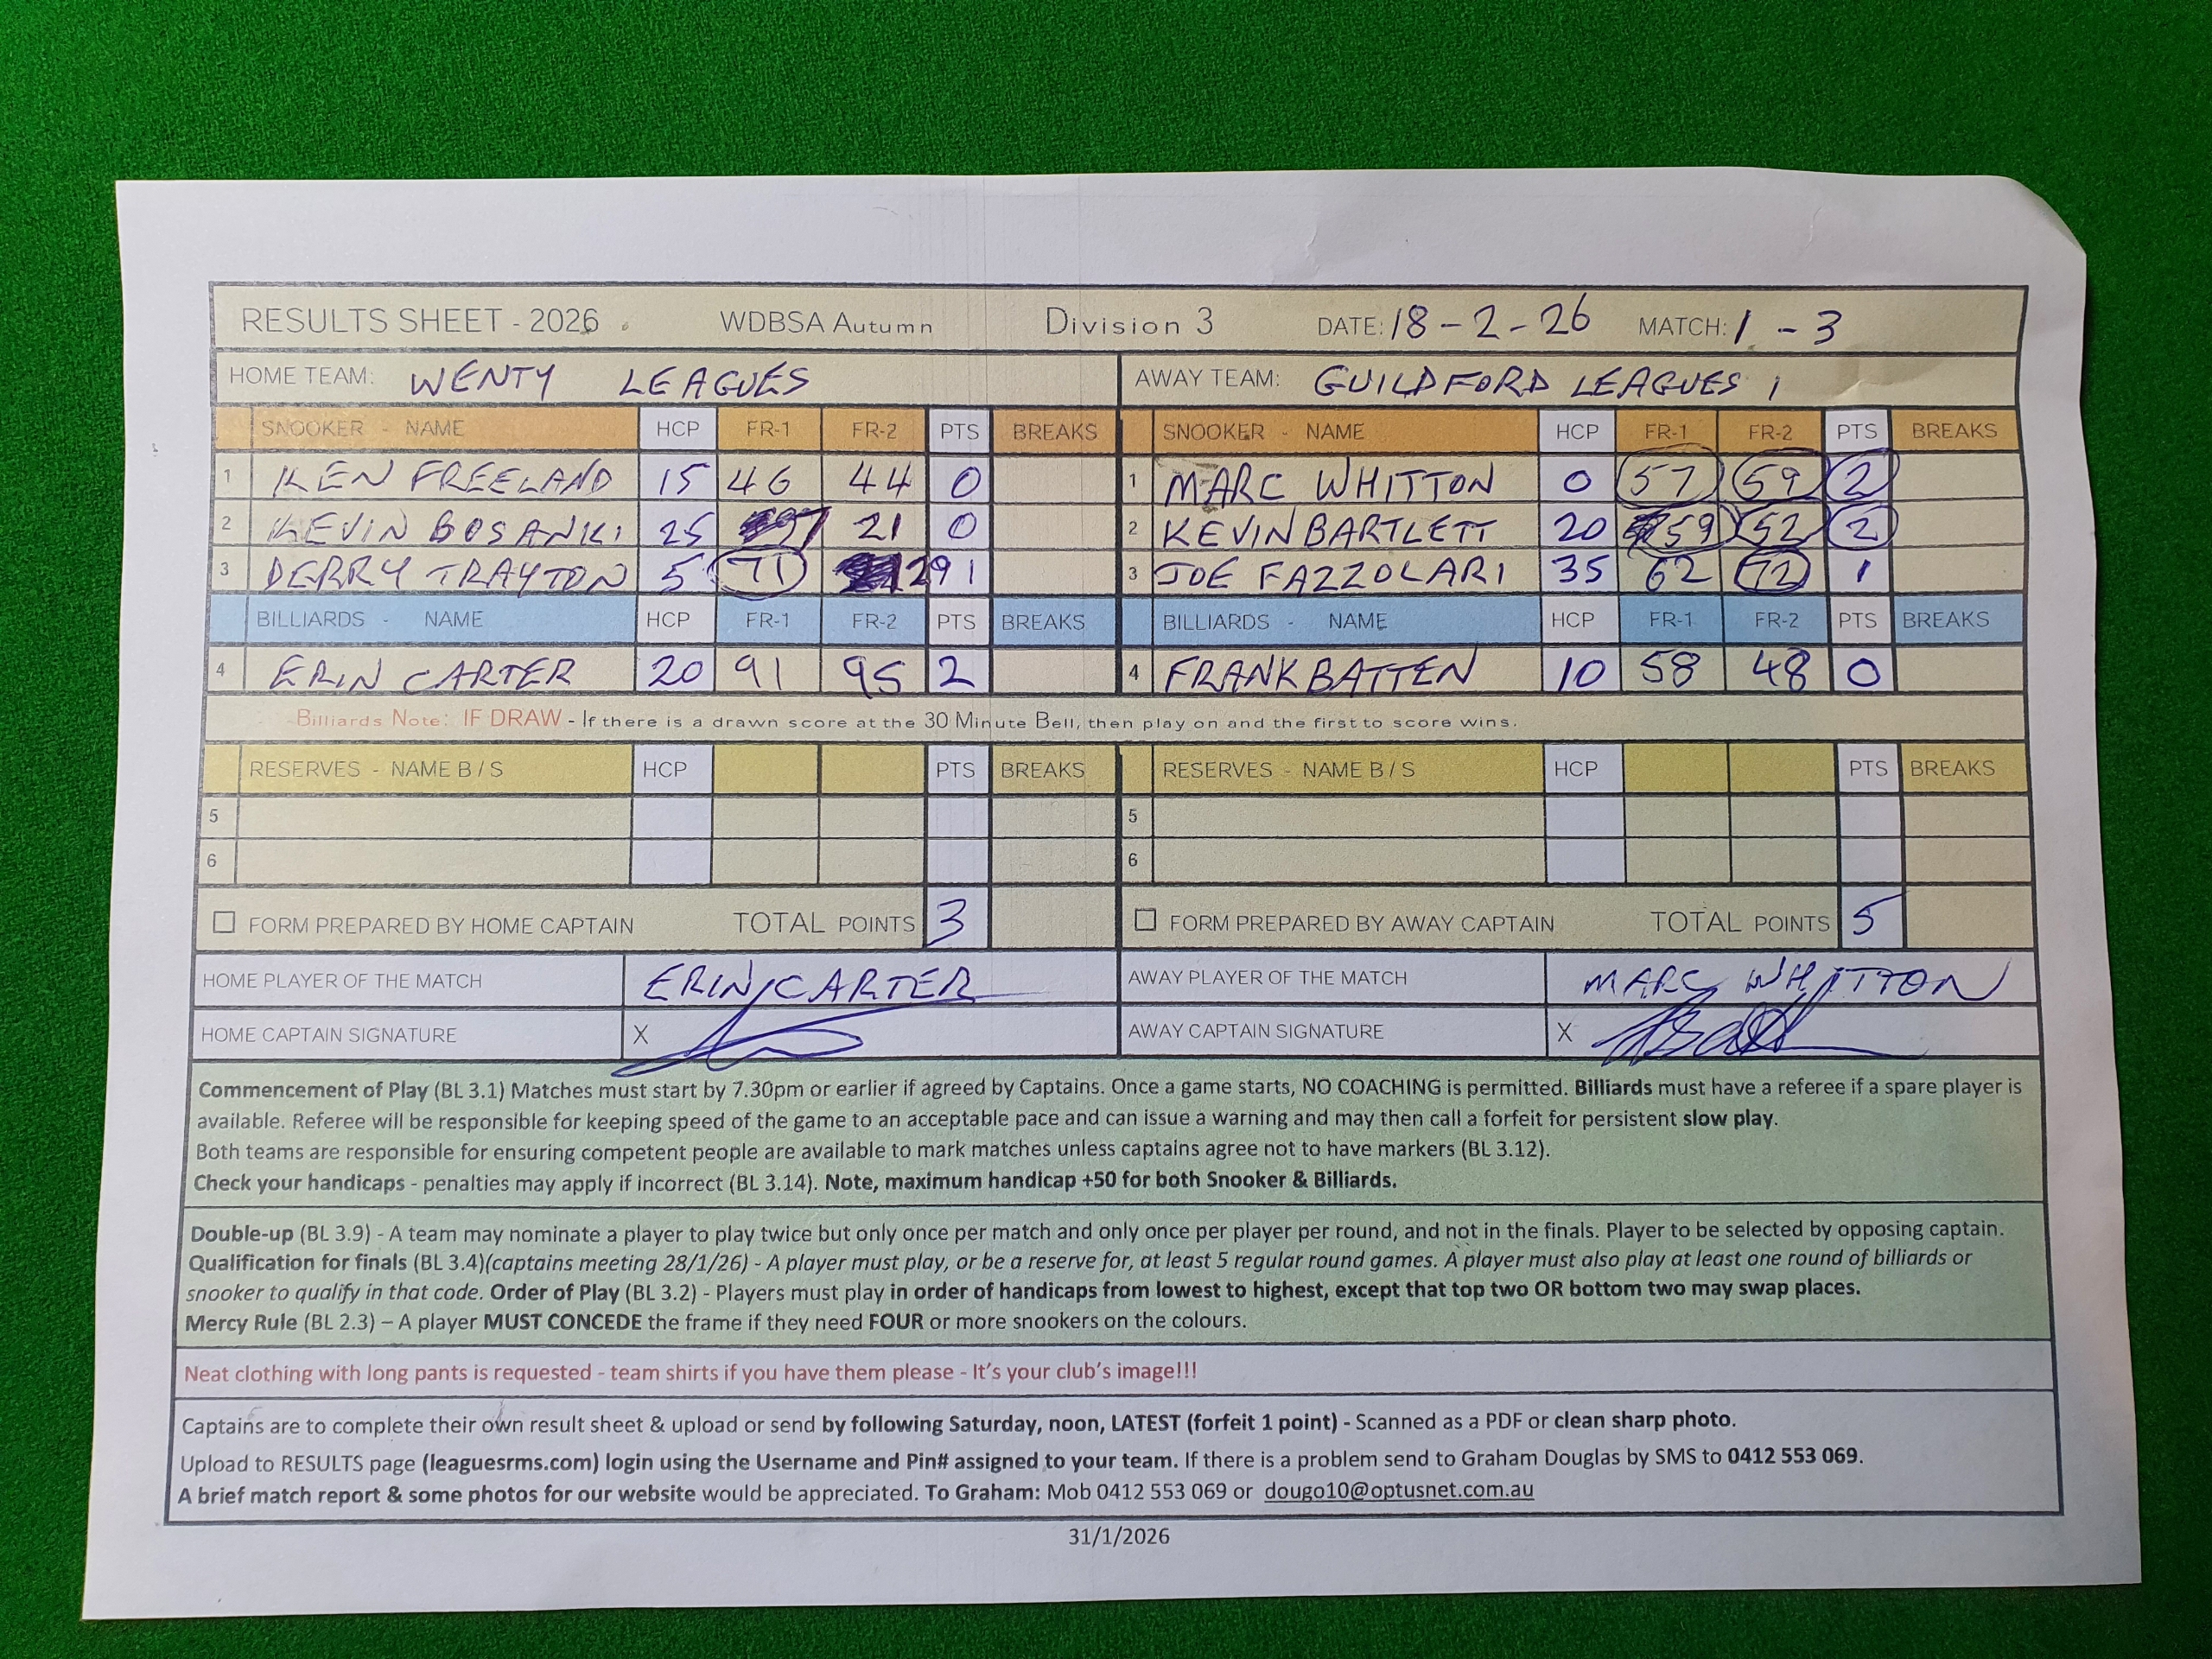 RESULTS SHEET - 2026 WDBSA Autumn Division 3 DATE: 18-2-26 MATCH: 1-3
HOME TEAM: WENTY LEAGUES AWAY TEAM: GUILDFORD LEAGUES 1
SNOOKER - NAME HCP FR-1 FR-2 PTS BREAKS SNOOKER - NAME HCP FR-1 FR-2 PTS BREAKS
1 KEN FREELAND 15 46 44 0 1 MARC WHITTON 0 57 59 2
2 KEVIN BOSANKI 25 21 0 2 KEVIN BARTLETT 20 59 52 2
3 DERRY TRAYTON 5 71 29 1 3 JOE FAZZOLARI 35 62 72 1
BILLIARDS - NAME HCP FR-1 FR-2 PTS BREAKS BILLIARDS - NAME HCP FR-1 FR-2 PTS BREAKS
4 ERIN CARTER 20 91 95 2 4 FRANK BATTEN 10 58 48 0
Billiards Note: IF DRAW - If there is a drawn score at the 30 Minute Bell, then play on and the first to score wins.
RESERVES - NAME B / S HCP PTS BREAKS RESERVES - NAME B / S HCP PTS BREAKS
5 5
6 6
FORM PREPARED BY HOME CAPTAIN TOTAL POINTS 3 FORM PREPARED BY AWAY CAPTAIN TOTAL POINTS 5
HOME PLAYER OF THE MATCH ERIN CARTER AWAY PLAYER OF THE MATCH MARC WHITTON
HOME CAPTAIN SIGNATURE X AWAY CAPTAIN SIGNATURE X
Commencement of Play (BL 3.1) Matches must start by 7.30pm or earlier if agreed by Captains. Once a game starts, NO COACHING is permitted. Billiards must have a referee if a spare player is
available. Referee will be responsible for keeping speed of the game to an acceptable pace and can issue a warning and may then call a forfeit for persistent slow play.
Both teams are responsible for ensuring competent people are available to mark matches unless captains agree not to have markers (BL 3.12).
Check your handicaps - penalties may apply if incorrect (BL 3.14). Note, maximum handicap +50 for both Snooker & Billiards.
Double-up (BL 3.9) - A team may nominate a player to play twice but only once per match and only once per player per round, and not in the finals. Player to be selected by opposing captain.
Qualification for finals (BL 3.4)(captains meeting 28/1/26) - A player must play, or be a reserve for, at least 5 regular round games. A player must also play at least one round of billiards or
snooker to qualify in that code. Order of Play (BL 3.2) - Players must play in order of handicaps from lowest to highest, except that top two OR bottom two may swap places.
Mercy Rule (BL 2.3) – A player MUST CONCEDE the frame if they need FOUR or more snookers on the colours.
Neat clothing with long pants is requested - team shirts if you have them please - It's your club's image!!!
Captains are to complete their own result sheet & upload or send by following Saturday, noon, LATEST (forfeit 1 point) - Scanned as a PDF or clean sharp photo.
Upload to RESULTS page (leaguesrms.com) login using the Username and Pin# assigned to your team. If there is a problem send to Graham Douglas by SMS to 0412 553 069.
A brief match report & some photos for our website would be appreciated. To Graham: Mob 0412 553 069 or dougo10@optusnet.com.au
31/1/2026